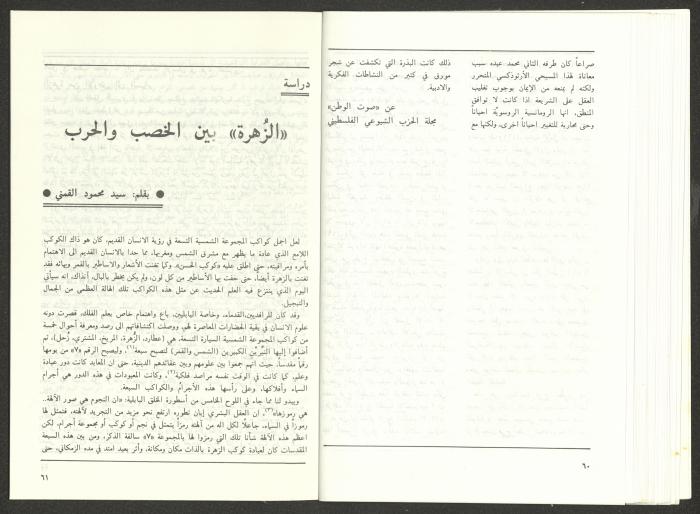 صراعاً كان طرفه الثاني محمد عبده سبب
معاناة لهذا المسيحي الأرثوذكسي المتحرر
ولكنه لم يمنعه من الإيمان بوجوب تغليب
العقل على الشريعة اذا كانت لا توافق
المنطق، انها الرومانسية الروسويّة أحياناً
وحتى محاربة للتغيير احياناً اخرى، ولكنها مع
ذلك كانت البذرة التي تكشفت عن شجر
مورق في كثير من النشاطات الفكرية
والادبية.
عن «صوت الوطن»
مجلة الحزب الشيوعي الفلسطيني
٦٠
دراسة
«الزُهرة» بين الخصب والحرب
● بقلم: سيد محمود القمني ●
لعل اجمل كواكب المجموعة الشمسية التسعة في رؤية الانسان القديم، كان هو ذاك الكوكب
اللامع الذي عادة ما يظهر مع مشرق الشمس ومغربها، مما حدا بالانسان القديم الى الاهتمام
بأمره ومراقبته، حتى اطلق عليه «كوكب الحسن». وكما تغنت الأشعار والاساطير بالقمر وبهائه فقد
تغنت بالزهرة أيضاً، حتى حفت بها الأساطير من كل لون، ولم يكن يخطر بالبال، آنذاك، انه سيأتي
اليوم الذي ينتزع فيه العلم الحديث عن مثل هذه الكواكب تلك الهالة العظمى من الجمال
والتبجيل.
وقد كان للرافديين القدماء، وخاصة البابليين، باع واهتمام خاص بعلم الفلك، قصرت دونه
علوم الانسان في بقية الحضارات المعاصرة لهم، ووصلت اكتشافاتهم الى رصد ومعرفة أحوال خمسة
من كواكب المجموعة الشمسية السيارة التسعة، هي (عطارد، الزُهرة، المريخ، المشتري، زُحل)، ثم
أضافوا إليها النيِّرين الكبيرين (الشمس والقمر) لتصبح سبعة(١)، وليصبح الرقم «٧» من يومها
رقماً مقدساً، حيث انهم جمعوا بين علومهم وبين عقائدهم الدينية، حتى ان المعابد كانت دور عبادة
وعلم، كما كانت في الوقت نفسه مراصد فلكية(٢)، وكانت المعبودات في هذه الدور هي أجرام
السماء وأفلاكها، وعلى رأسها هذه الأجرام والكواكب السبعة.
ويبدو لنا مما جاء في اللوح الخامس من أسطورة الخلق البابلية: «ان النجوم هي صور الآلهة..
هي رموزها»(٣)، ان العقل البشري إبان تطوره ارتفع نحو مزيد من التجريد لآلهته، فتمثل لها
رموزاً في السماء، جاعلاً لكل اله من آلهته رمزاً يتمثل في نجم أو كوكب أو مجموعة أجرام، لكن
اعظم هذه الآلهة شأناً تلك التي رمزوا لها بالمجموعة «٧» سالفة الذكر، ومن بين هذه السبعة
المقدسات كان لعبادة كوكب الزهرة بالذات مكان ومكانة، وأثر بعيد امتد في مده الزمكاني، حتى
٦١